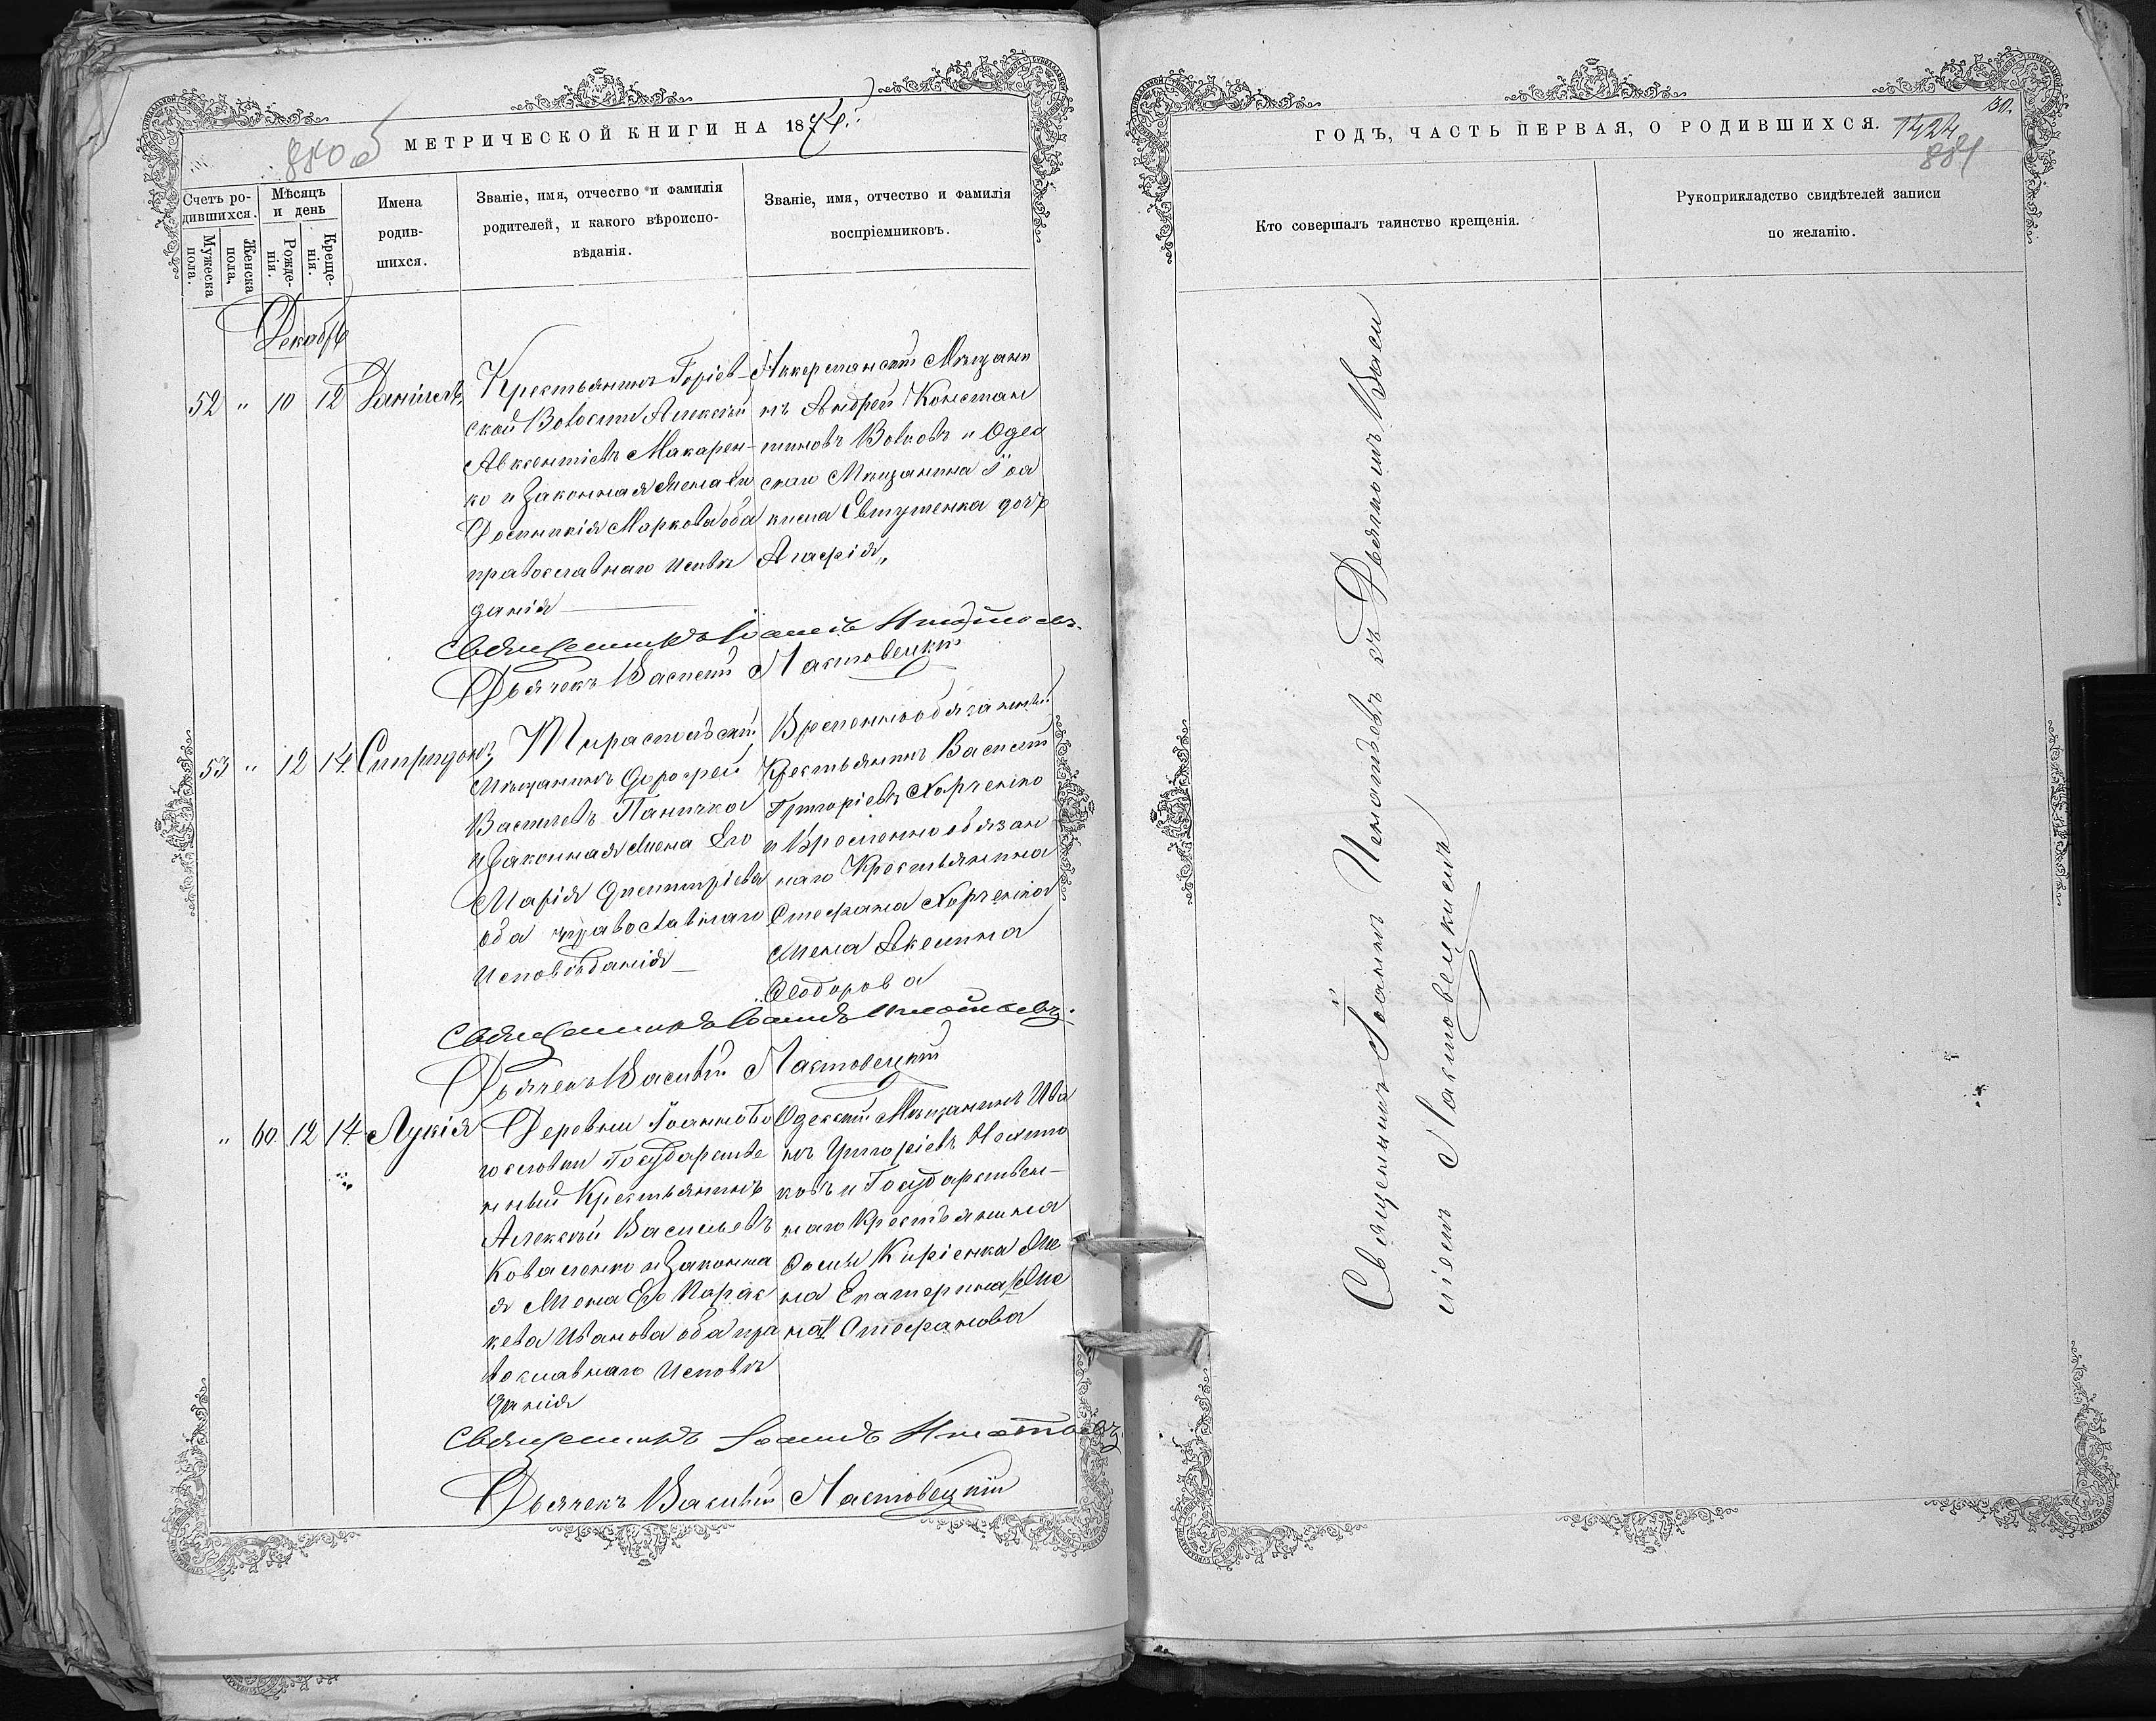 880 об
МЕТРИЧЕСКОЙ КНИГИ НА 1874.
Счетъ ро-
дившихся.
Мужеска
пола.
Женска
пола,
Мѣсяцъ
и день
Рожде-
нія.
Креще-
нія.
Имена
родив-
шихся.
Званіе, имя, отчество и фамилія
родителей, и какого вѣроиспо-
вѣданія.
Званіе, имя, отчество и фамилія
воспріемниковъ.
Декабрь
52 " 10 12 Даніилъ,
Крестьянинъ
ской Волости Алексѣй
Авксентіевъ Макарен-
ко и Законная Жена Его
Маркова оба
православнаго Исповѣ
данія
Аккерманскій Мѣщани
нъ Андрей Констан
тиновъ Волковъ и Одес
скаго Мѣщанина Іоа
кима Евтушенка дочь
Агафія,,
Священникъ Іоаннъ Игнатьевъ.
Дьячекъ Василій Ластовецкій
53 " 12 14. Спиридонъ,
Тираспольскій
Мѣщанинъ Дорофей
Васильевъ Паничко
и Законная Жена Его
Марія Димитріева
оба православнаго
Исповѣданія
Временнообязанный
Крестьянинъ Василій
Григоріевъ Харченко
и Временнообязан
наго Крестьянина
Стефана Харченка
Жена Акелина
Ѳеодорова
Священникъ Іоаннъ Игнатьевъ.
Дьячекъ Василій Ластовецкій
" 60. 12 14 Лукія
Деревни Іоанно Бо
гословки Государстве
нный Крестьянинъ
Алексѣй Васильевъ
Коваленко и Законна
я Жена Его Парас
кева Иванова оба пра
вославнаго Исповѣ
данія
Одесскій Мѣщанинъ Ива
нъ Григоріевъ
ковъ и Государствен-
наго Крестьянина
Ѳомы Киріенка Же
на Екатерина Же
на Стефанова
Священникъ Іоаннъ Игнатьевъ
Дьячекъ Василій Ластовецкій
30.
ГОДЪ, ЧАСТЬ ПЕРВАЯ, О РОДИВШИХСЯ.
1424
881
Кто совершалъ таинство крещенія.
Рукоприкладство свидѣтелей записи
по желанію.
Священникъ Іоаннъ Игнатьевъ съ Дьячкомъ Васи
ліемъ Ластовецкимъ